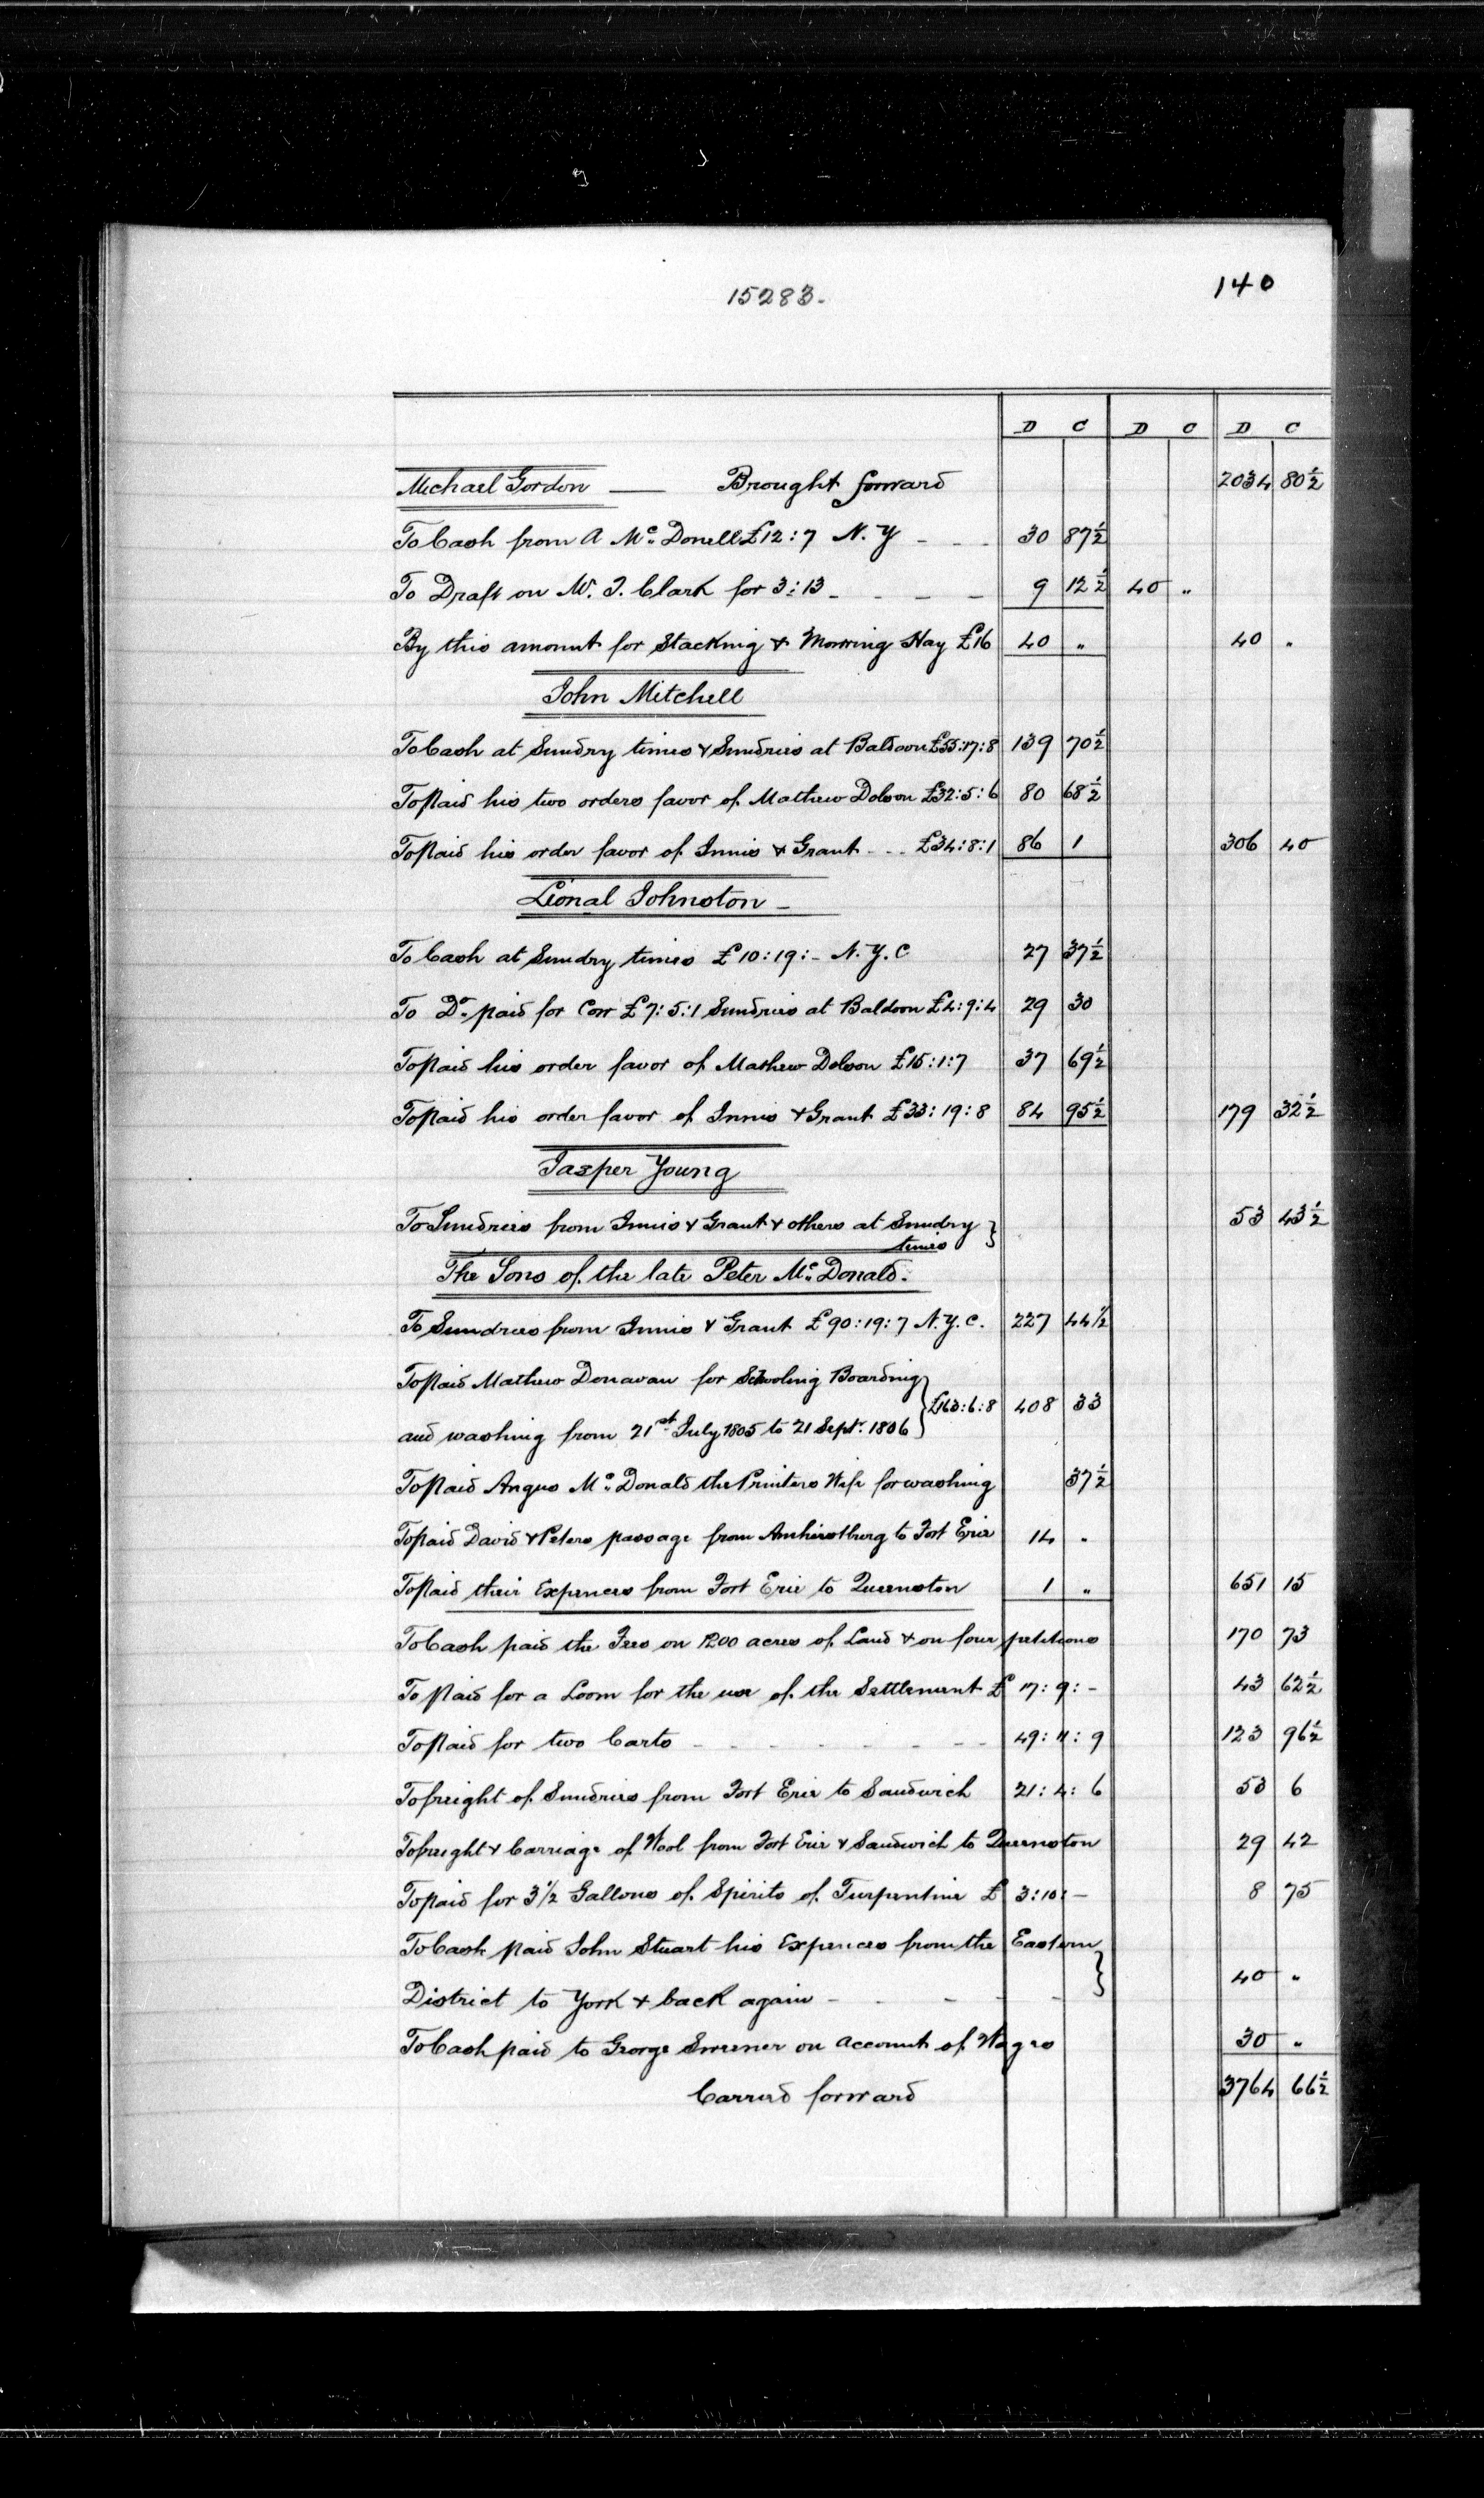 15283.
140
D C D C D C
Michael Gordon — Brought forward 2034 80½
To Cash from A Mc. Donell £12:7 N.Y - - - 30 87½
To Draft on W. J. Clark for 3:13 - - - - 9 12½ 40 "
By this amount for Stacking & Mowing Hay £16 40 " 40 "
John Mitchell
To Cash at Sundry times & Sundries at Baldoon £55:17:8 139 70½
To Paid his two orders favor of Mathew Dolson £32:5:6 80 68½
To Paid his order favor of Innis & Grant - - - £34:8:1 86 1 306 40
Lional Johnston -
To Cash at Sundry times £10:19:- N.Y.C 27 37½
To Do. paid for Corr £7:5:1 Sundries at Baldoon £4:9:4 29 30
To Paid his order favor of Mathew Dolson £15:1:7 37 69½
To Paid his order favor of Innis & Grant £33:19:8 84 95½ 179 32½
Jasper Young
To Sundries from Innis & Grant & others at Sundry 53 43½
times
The Sons of the late Peter Mc. Donald.
To Sundries from Innis & Grant £90:19:7 N.Y.C. 227 44½
To Paid Mathew Donavan for Schooling Boarding
£163:6:8 408 33
and washing from 21st July 1805 to 21 Sept. 1806
To Paid Angus Mc. Donald the Printers Wife for washing 37½
To paid David & Peters passage from Amherstburg to Fort Erie 14 "
To Paid their Expences from Fort Erie to Queenston 1 " 651 15
To Cash paid the Fees on 1200 acres of Land & on four petitions 170 73
To Paid for a Loom for the use of the Settlement £ 17:9:- 43 62½
To Paid for two Carts - - - - - - - - 49:11:9 123 96½
To freight of Sundries from Fort Erie to Sandwich 21:4:6 53 6
To freight & Carriage of Wool from Fort Erie & Sandwich to Queenston 29 42
To paid for 3½ Gallons of Spirits of Turpentine £ 3:10:- 8 75
To Cash paid John Stuart his Expences from the Eastern
40 "
District to York & back again - - - - -
To Cash paid to George Sweener on account of Wages 30 "
Carried forward 3764 66½